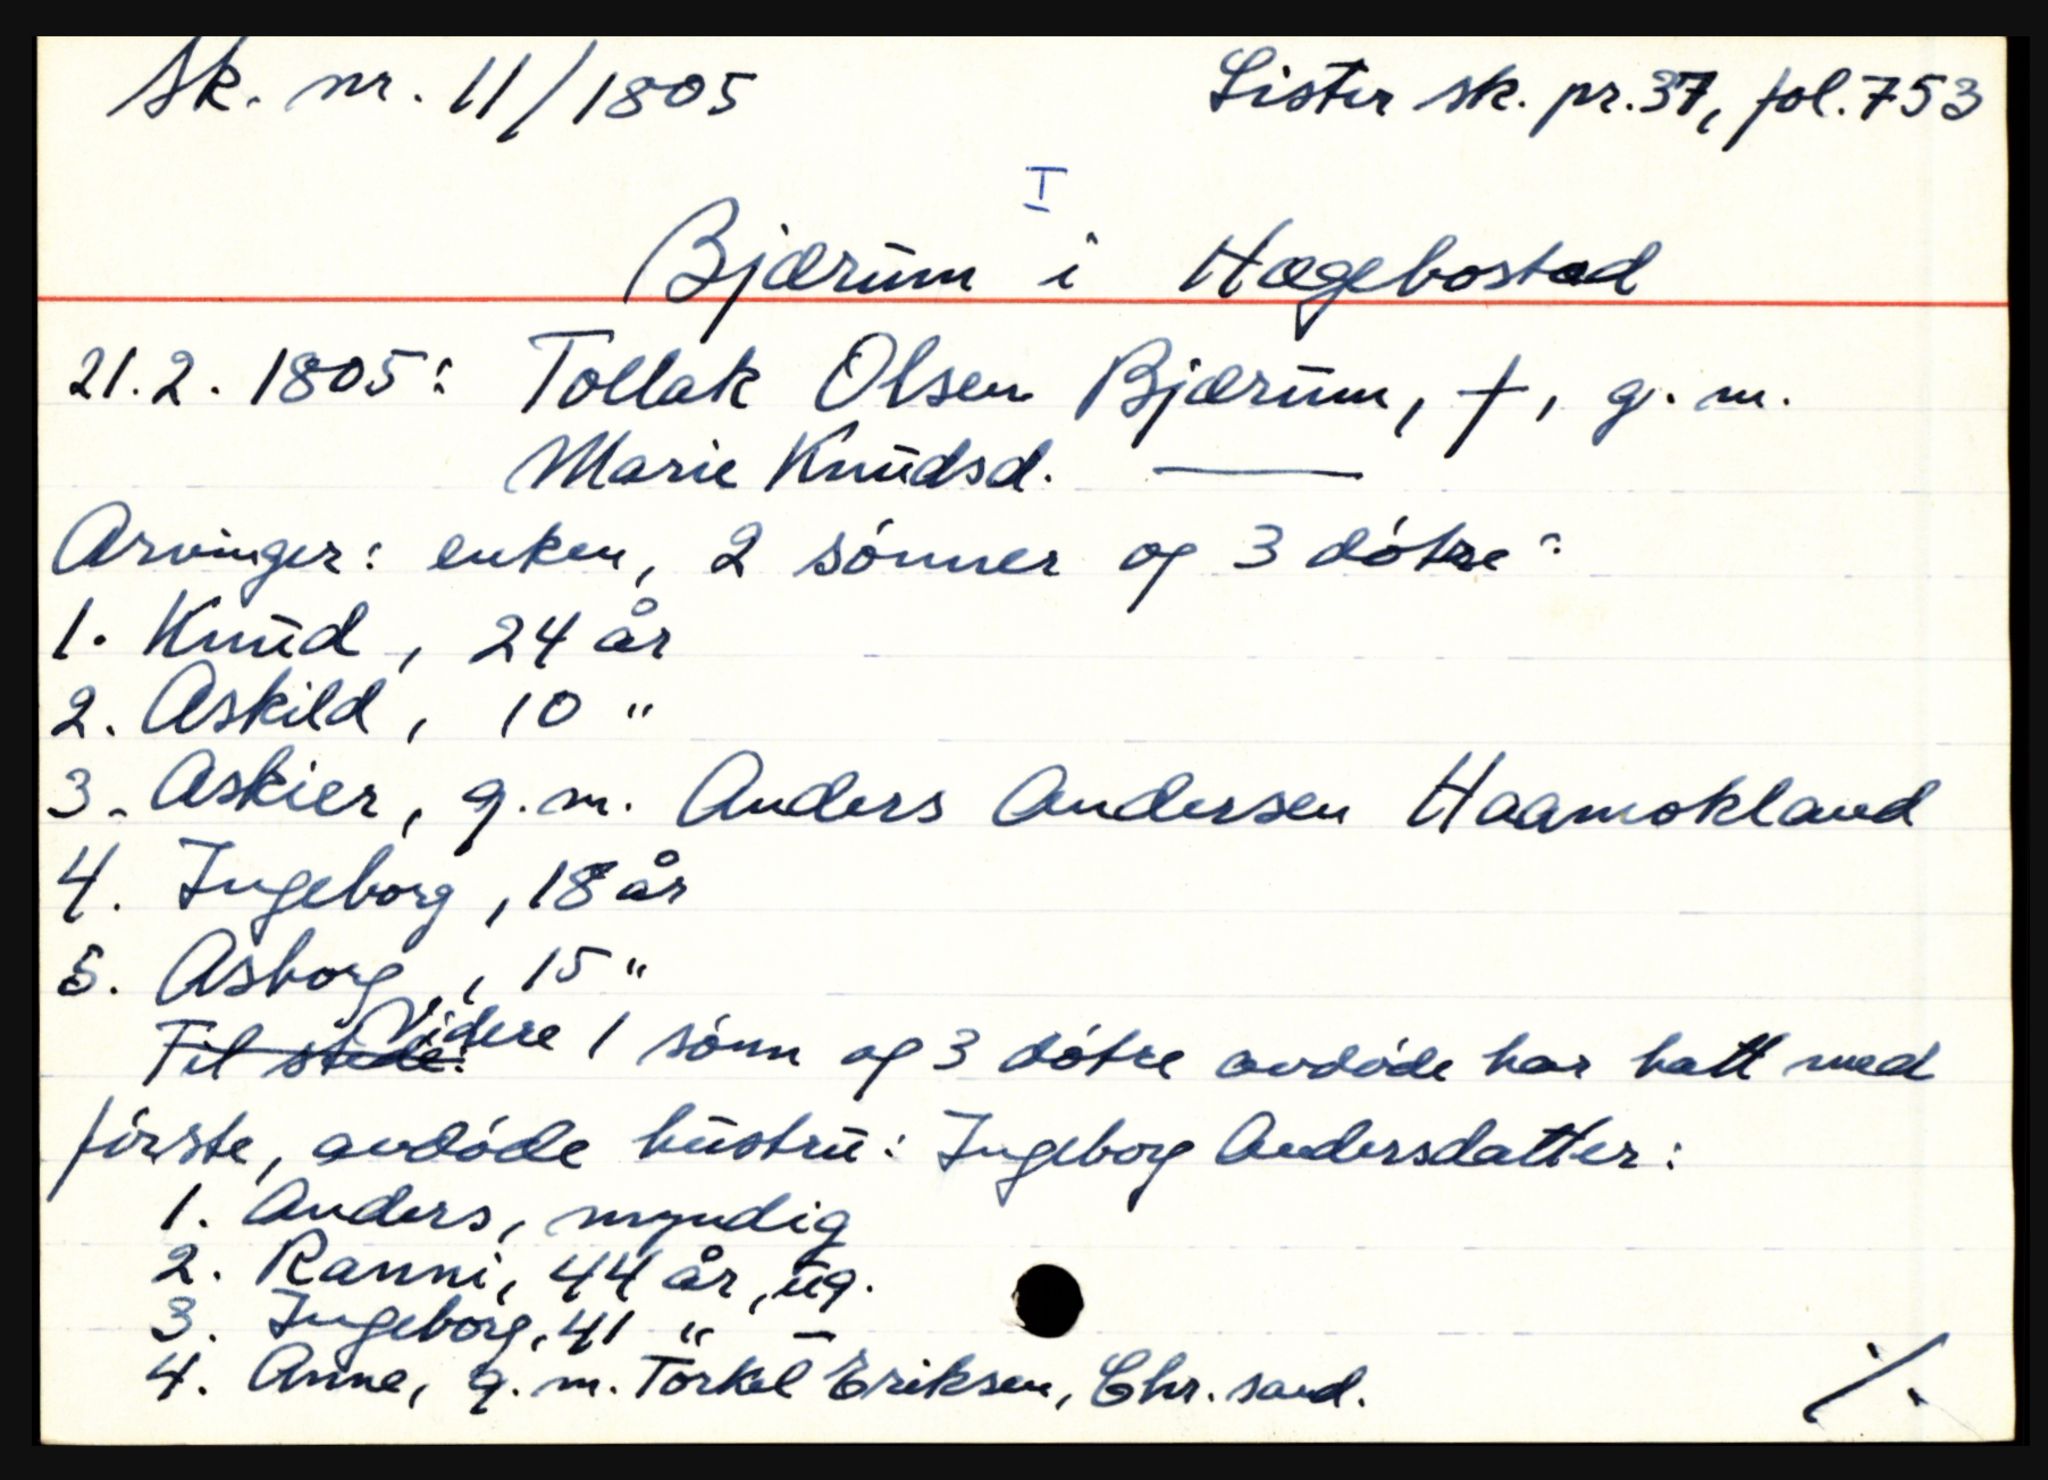 Sk. nr. 11/1805 Lister sk. pr. 37, fol. 753
I
Bjærum i Hægebostad
21.2.1805: Tollak Olsen Bjærum, †, g.m.
Marie Knudsd. ——
Arvinger: enken, 2 sønner og 3 døtre:
1. Knud, 24 år
2. Askild, 10 "
3. Askier, g.m. Anders Andersen Haamokland
4. Ingeborg, 18 år
5. Asborg, 15 "
Til stede: Videre 1 sønn og 3 døtre avdøde har hatt med
første, avdøde hustru: Ingeborg Andersdatter:
1. Anders, myndig
2. Ranni, 44 år, ug.
3. Ingeborg, 41 " –
4. Anne, g.m. Torkel Eriksen, Chr.sand.
./.